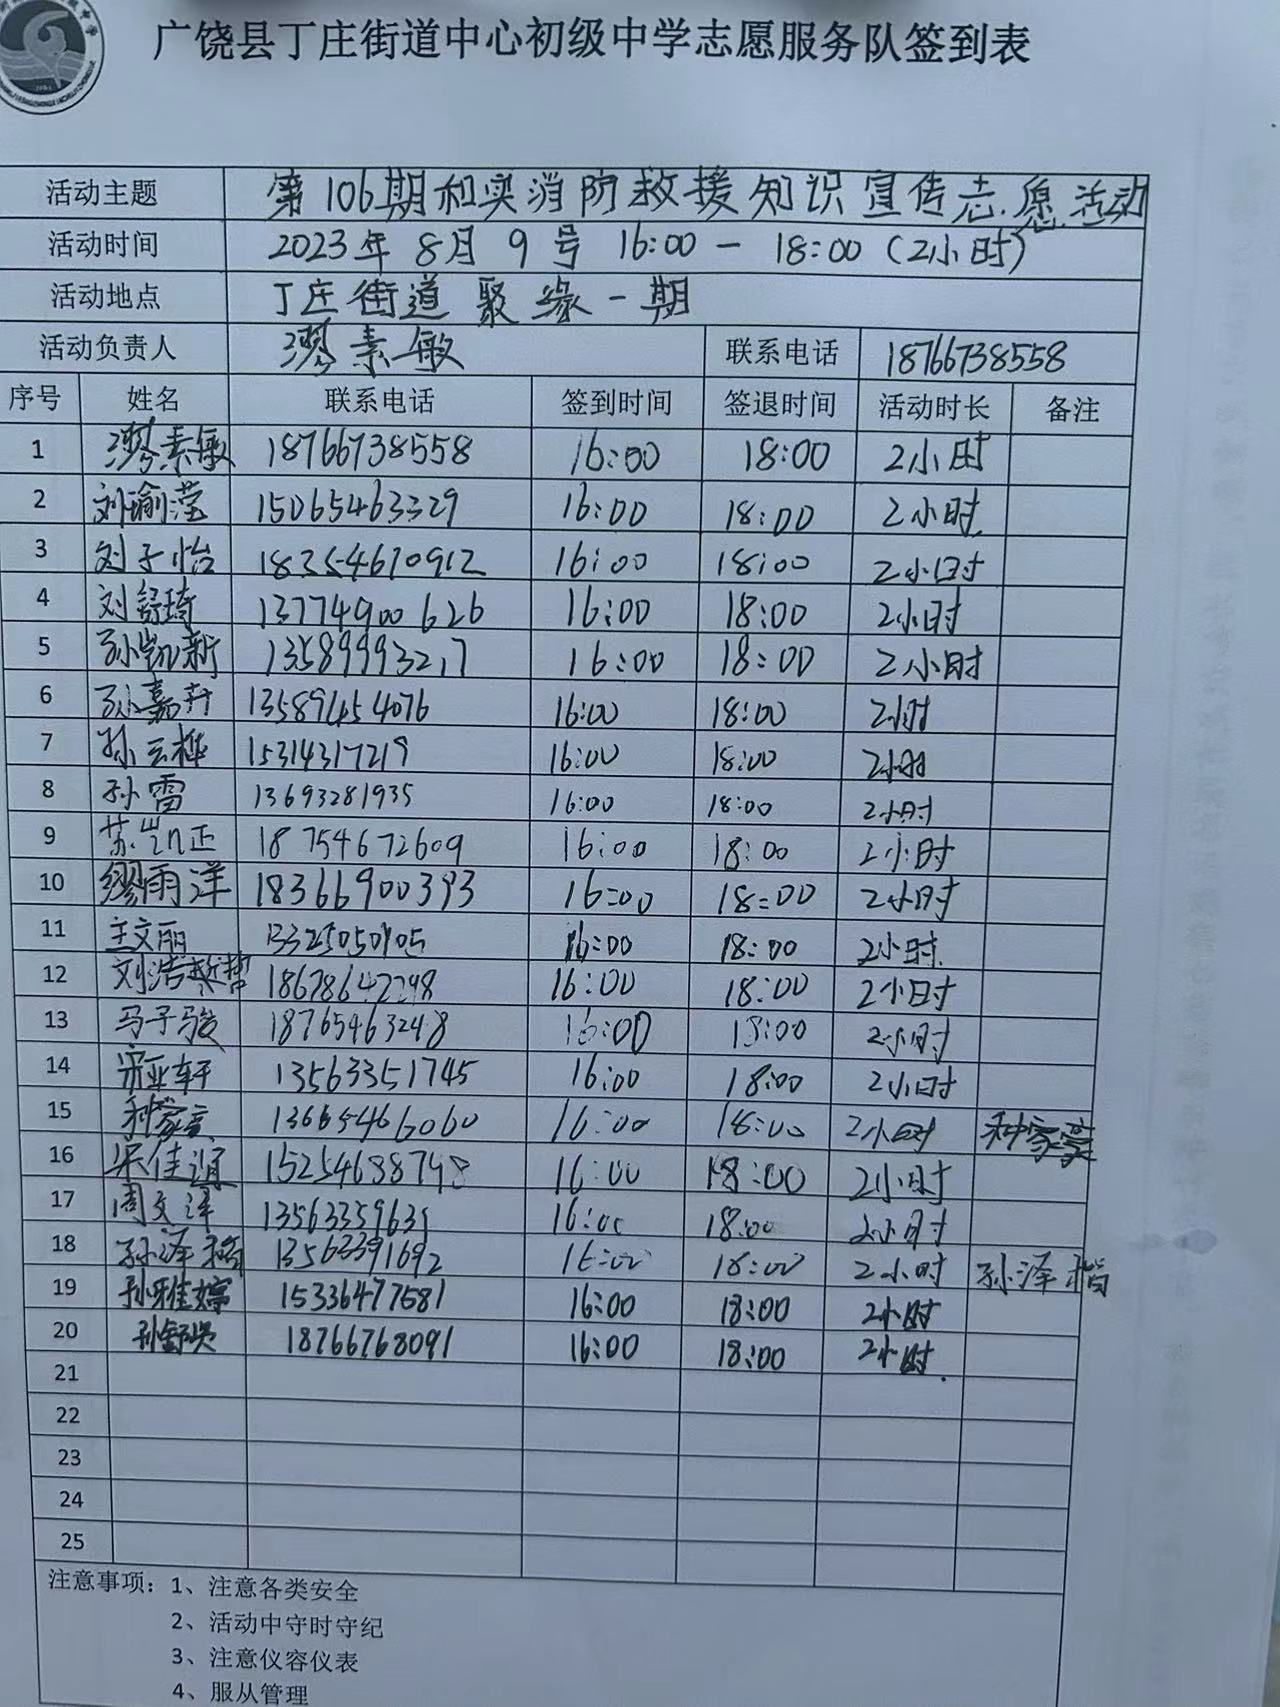 广饶县丁庄街道中心初级中学志愿服务队签到表
活动主题 第106期和实消防救援知识宣传志愿活动
活动时间 2023年8月9号 16:00-18:00(2小时)
活动地点 丁庄街道聚缘一期
活动负责人 缪素敏 联系电话 18766738558
序号 姓名 联系电话 签到时间 签退时间 活动时长 备注
1 缪素敏 18766738558 16:00 18:00 2小时
2 刘瑜滢 15065463329 16:00 18:00 2小时
3 刘子怡 18354610912 16:00 18:00 2小时
4 刘舒琦 13774900626 16:00 18:00 2小时
5 孙凯新 13589993217 16:00 18:00 2小时
6 孙嘉卉 13589454076 16:00 18:00 2小时
7 孙云桦 15314317219 16:00 18:00 2小时
8 孙雷 13693281935 16:00 18:00 2小时
9 苏凯正 18754672609 16:00 18:00 2小时
10 缪雨洋 18366900393 16:00 18:00 2小时
11 王文丽 13325050105 16:00 18:00 2小时
12 刘浩哲 18678647298 16:00 18:00 2小时
13 马子骏 18765463248 16:00 18:00 2小时
14 宋亚轩 13563351745 16:00 18:00 2小时
15 种家豪 13665466060 16:00 18:00 2小时 种家豪
16 宋佳谊 15254688798 16:00 18:00 2小时
17 周文洋 13563359635 16:00 18:00 2小时
18 孙泽楷 13563391692 16:00 18:00 2小时 孙泽楷
19 孙雅婷 15336477581 16:00 18:00 2小时
20 孙舒昊 18766768091 16:00 18:00 2小时.
21
22
23
24
25
注意事项：1、注意各类安全
2、活动中守时守纪
3、注意仪容仪表
4、服从管理